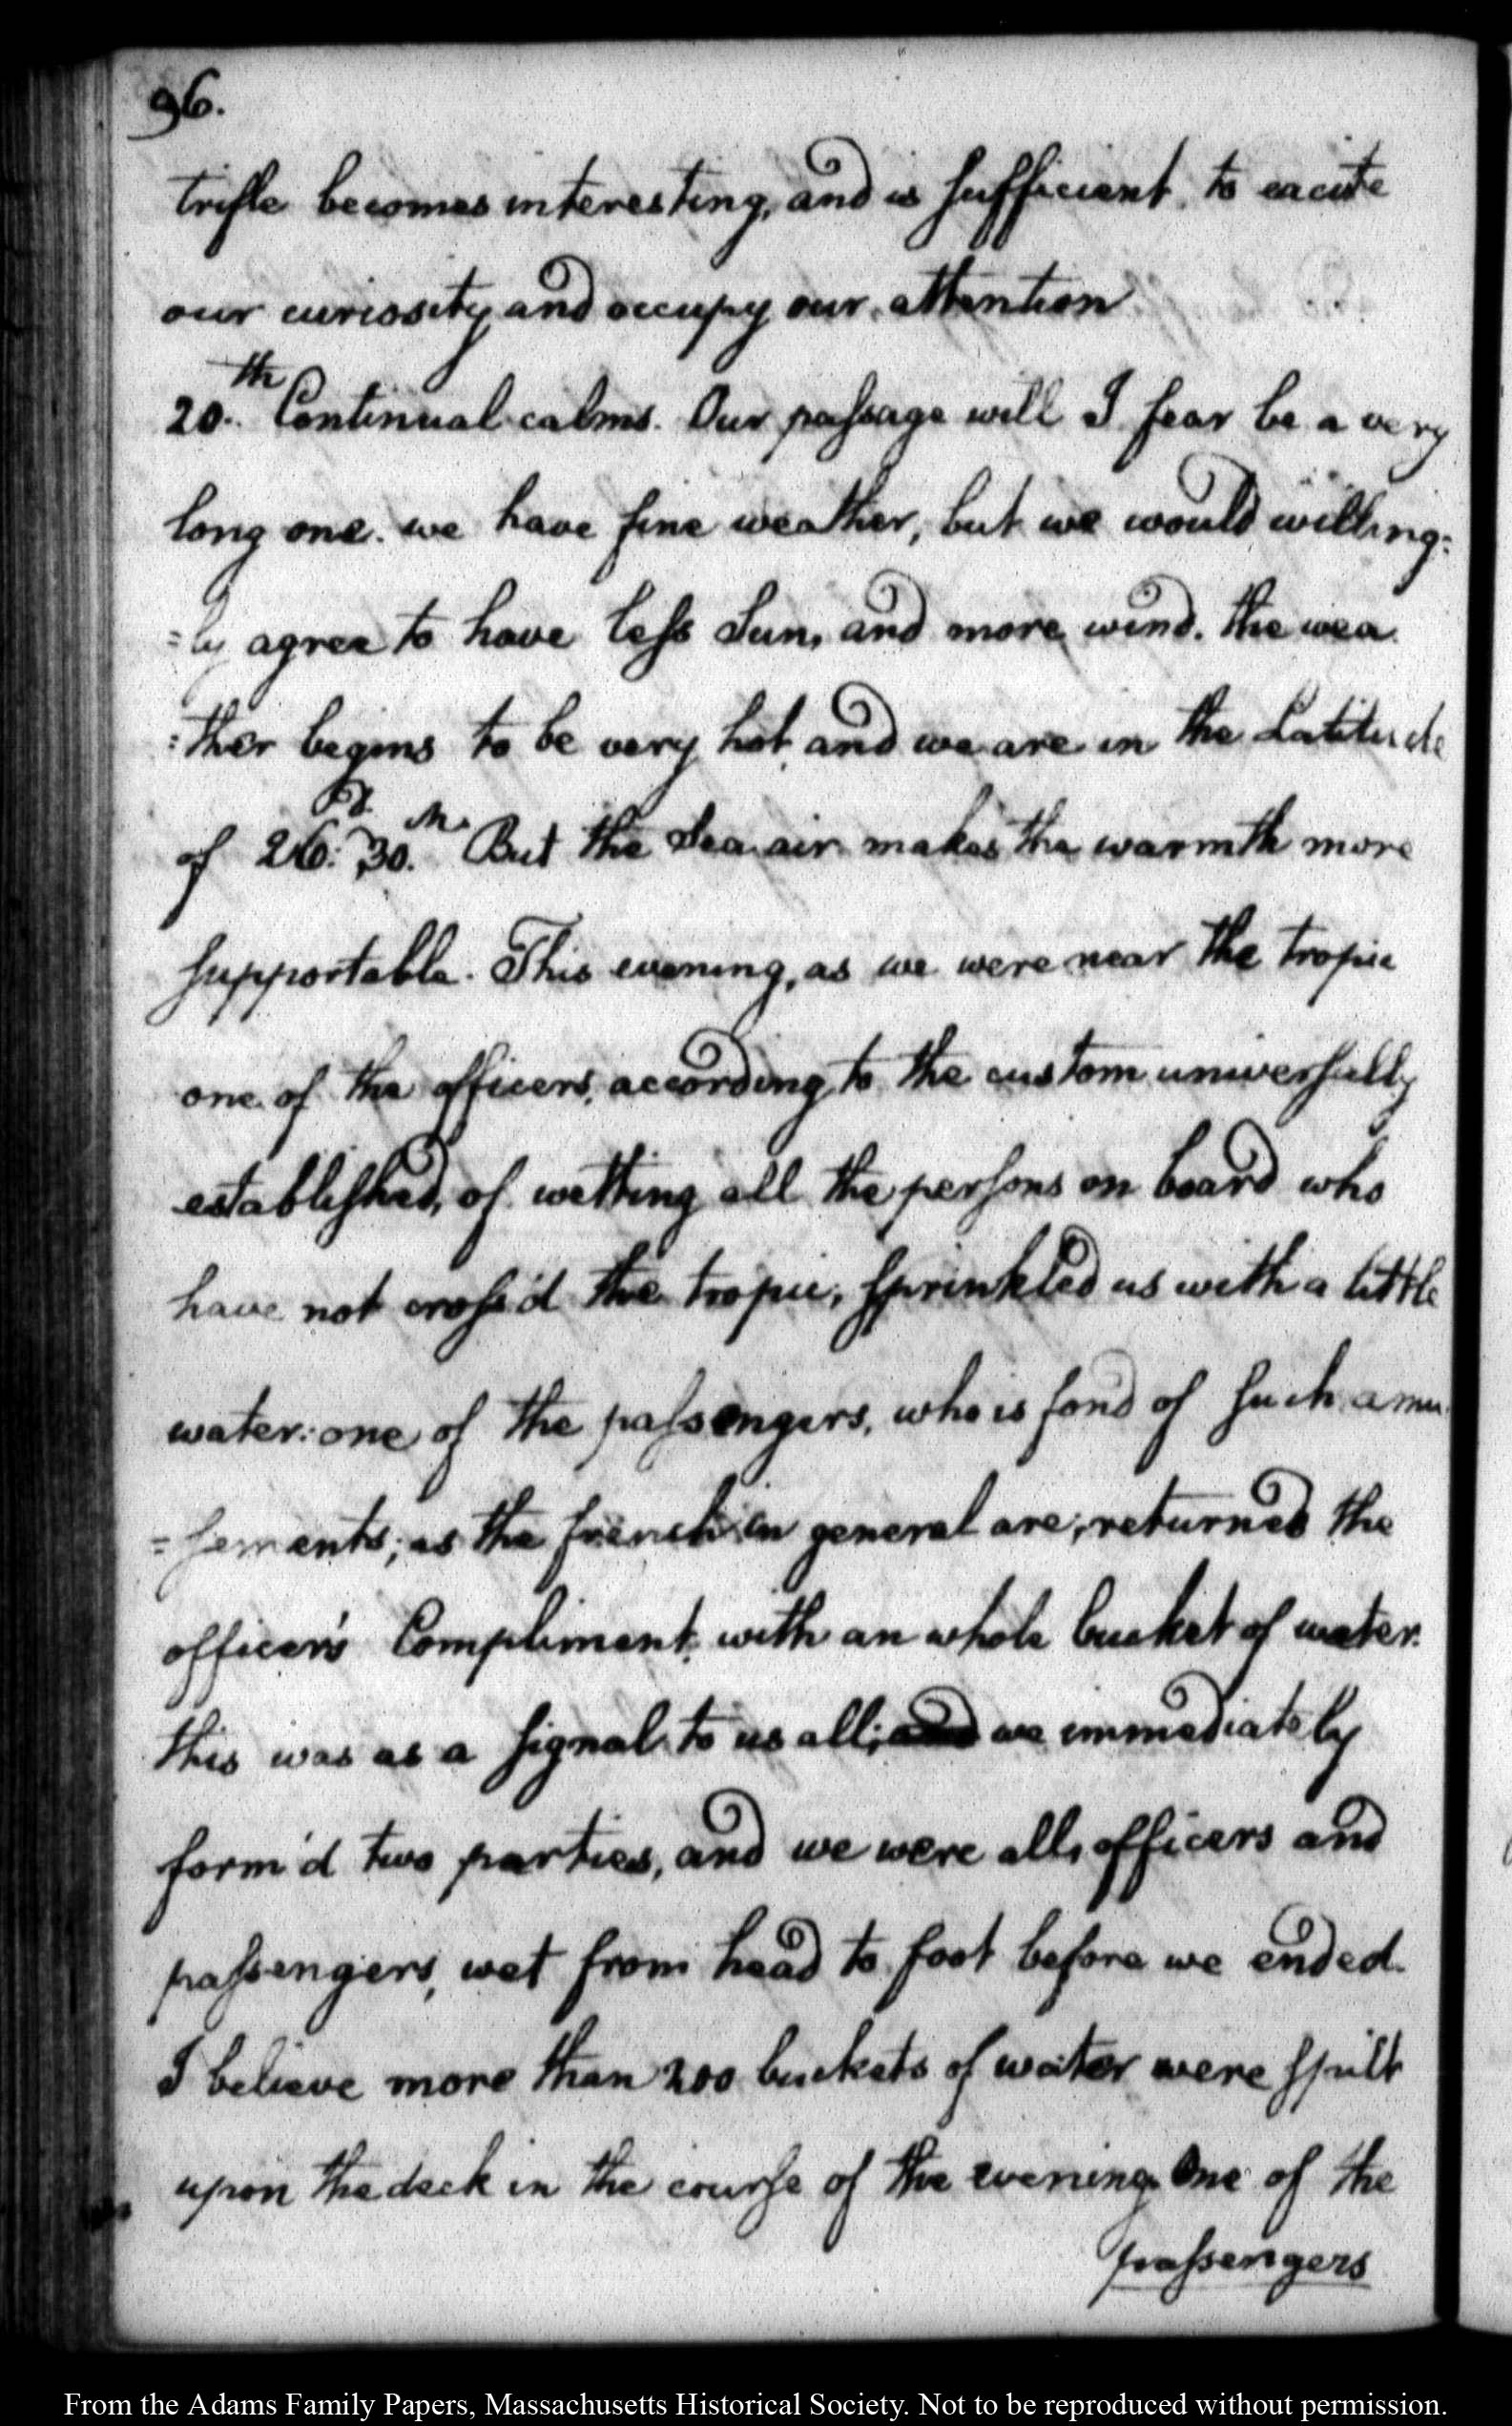 96.
trifle becomes interesting, and is sufficient to excite
our curiosity and occupy our attention
20.th Continual calms. Our passage will I fear be a very
long one. we have fine weather, but we would willing=
=ly agree to have less Sun, and more wind. the wea
=ther begins to be very hot and we are in the Latitude
of 26.d 30.m But the Sea air makes the warmth more
supportable. This evening, as we were near the tropic
one of the officers, according to the custom universally
established, of wetting all the persons on board who
have not cross'd the tropic, sprinkled us with a little
water: one of the passengers, who is fond of such amu
=sements; as the french in general are, returned the
officer's Compliment, with an whole bucket of water.
this was as a signal to us all; and we immediately
form'd two parties, and we were all, officers and
passengers, wet from head to foot before we ended.
I believe more than 200 buckets of water were spilt
upon the deck in the course of the evening. One of the
passengers
From the Adams Family Papers, Massachusetts Historical Society. Not to be reproduced without permission.